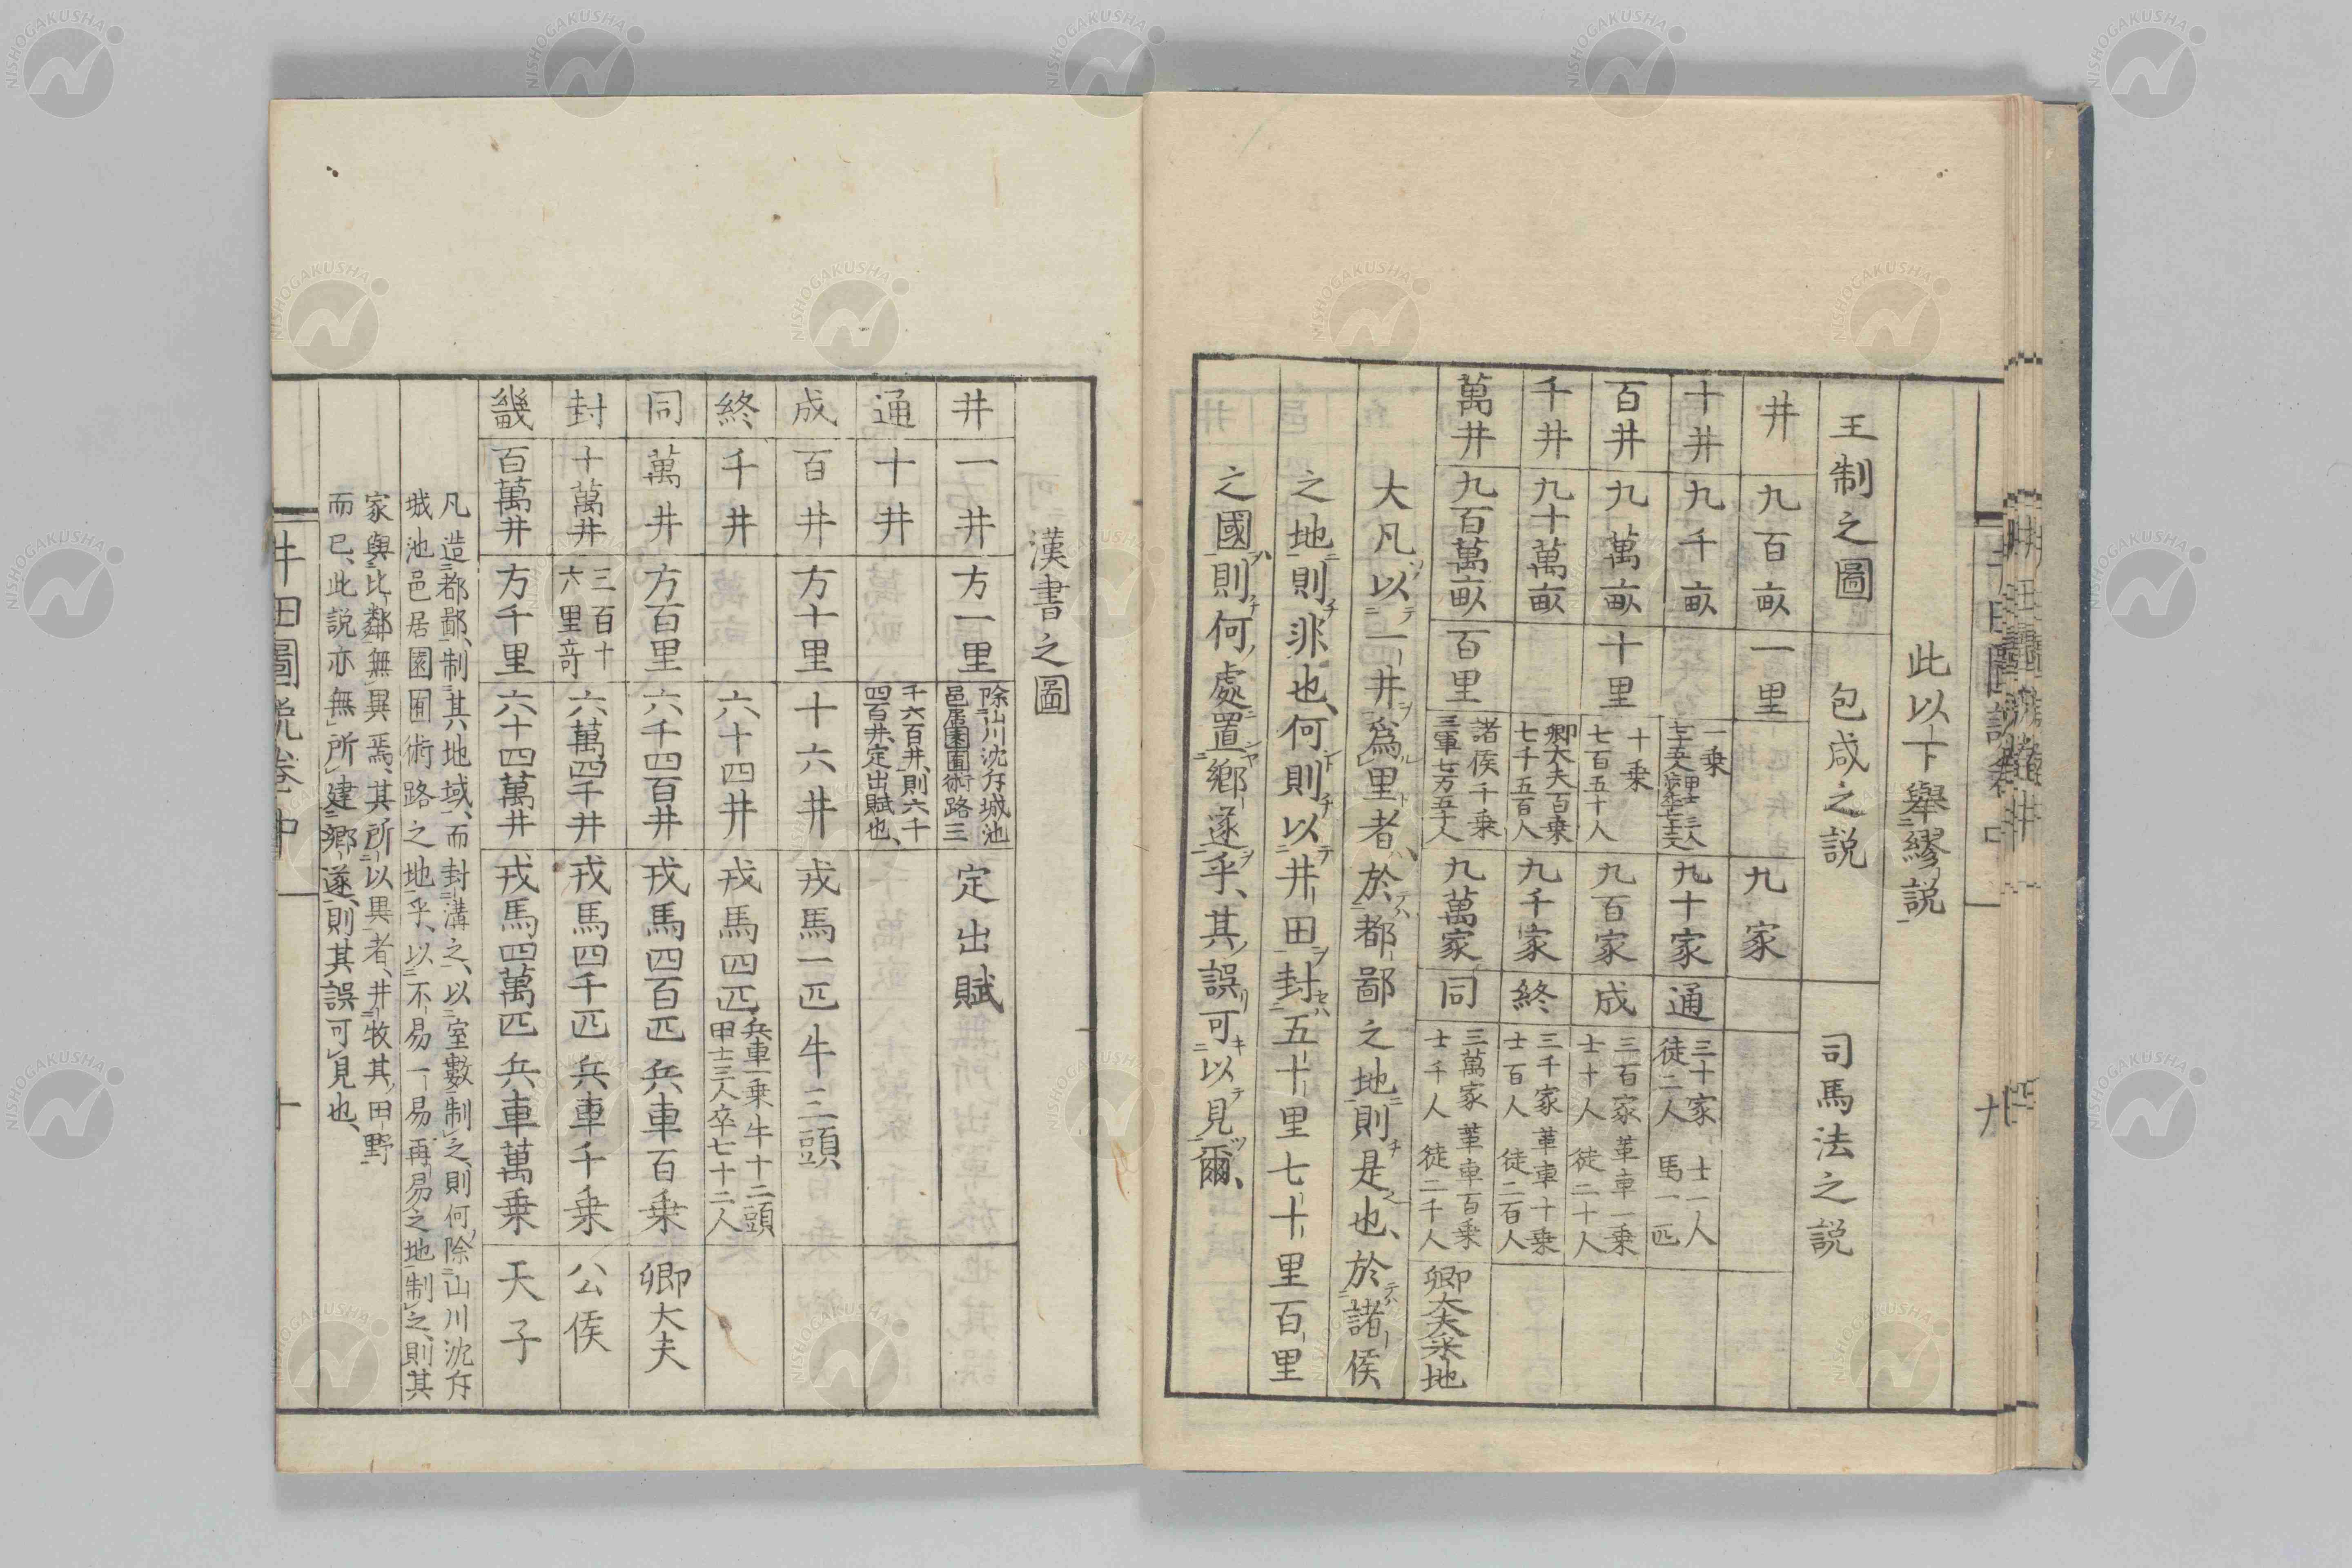 此以下舉繆説
王制之圖　包咸之説　司馬法之説
井　九百畝　一里　九家
十井　九千畝　一乗　九十家　通　三十家　士一人　徒二人　馬一匹
百井　九萬畝　十里　十乗　七百五十人　九百家　成　三百家　革車一乗　士十人　徒二十人
千井　九十萬畝　卿大夫百乗　七千五百人　九千家　終　三千家　革車十乗　士百人　徒二百人
萬井　九百萬畝　百里　諸侯千乗　三軍七万五千人　九萬家　同　三萬家　革車百乗　士千人　徒二千人　卿大夫采地
大凡以一井爲里者、於都鄙之地則是也、於諸侯
之地則非也、何則以井田封五十里七十里百里
之國則何處置鄉遂乎、其誤可以見爾、
漢書之圖
井　一井　方一里　除山川沈斥城池邑居園囿術路三　定出賦
通　十井　千六百井、則六千四百井、定出賦也、
成　百井　方十里　十六井　戎馬一匹牛三頭
終　千井　六十四井　戎馬四匹　兵車一乗牛十二頭　甲士三人卒七十二人
同　萬井　方百里　六千四百井　戎馬四百匹　兵車百乗　卿大夫
封　十萬井　三百十六里竒　六萬四千井　戎馬四千匹　兵車千乗　公侯
畿　百萬井　方千里　六十四萬井　戎馬四萬匹　兵車萬乗　天子
凡造都鄙、制其地域、而封溝之、以室數制之、則何除山川沈斥
城池邑居園囿術路之地乎、以不易一易再易之地制之、則其
家與比鄰無異焉、其所以異者、井牧其田野
而已、此説亦無所建鄉遂、則其誤可見也、
井田圖説卷中　十